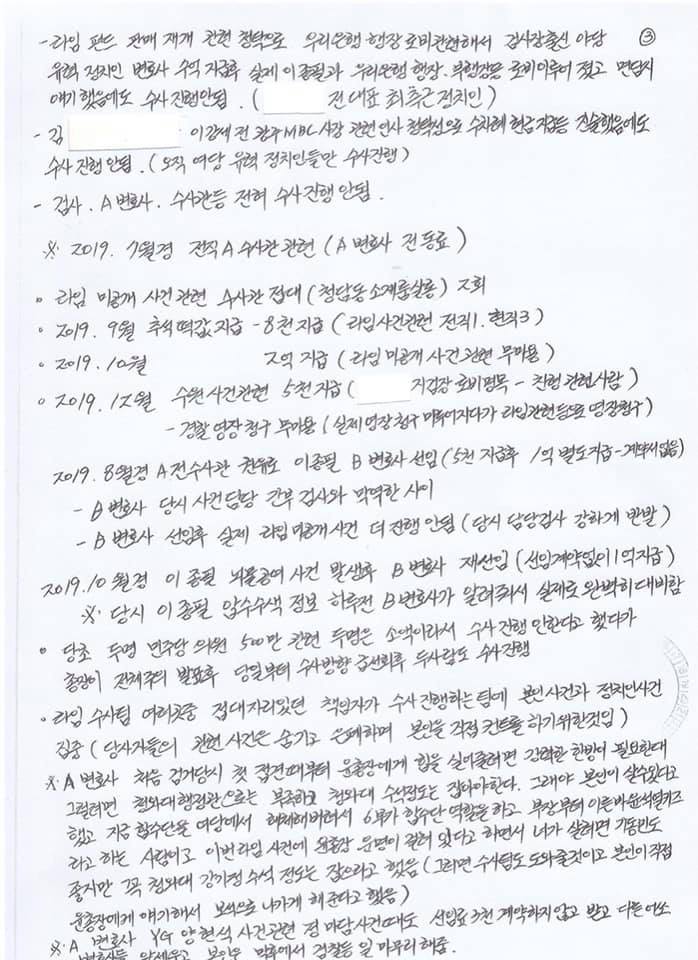 - 라임 펀드 판매 재개 관련 청탁으로 우리은행 행장 로비관련해서 검사장출신 야당 ③
유력 정치인 변호사 수억 지급후 실제 이종필과 우리은행 행장. 부행장등 로비이루어 졌고 면담시
얘기했음에도 수사진행안됨. ( 전 대표 최측근 정치인)
- 김 이강세 전 광주MBC 사장 관련 인사 청탁성으로 수차례 현금지급등 진술했음에도
수사 진행 안됨. (오직 여당 유력 정치인들만 수사진행)
- 검사. A변호사. 수사관등 전혀 수사 진행 안됨.
※ 2019. 7월경 전직 A 수사관 관련 (A 변호사 전 동료)
◦ 라임 미공개 사건 관련 수사관 접대 (청담동 소재룸살롱) 2회
◦ 2019. 9월 추석떡값지급 - 8천지급 (라임사건관련 전직1. 현직3)
◦ 2019. 10월 2억 지급 (라임 미공개 사건 관련 무마용)
◦ 2019. 12월 수원사건관련 5천지급 ( 지검장 로비명목 - 친형 관련사람)
- 경찰 영장청구 무마용 (실제영장청구 미루어지다가 라임관련등으로 영장청구)
2019. 8월경 A전수사관 권유로 이종필 B 변호사 선임 (5천 지급후 1억 별도지급-계약서없음)
- B 변호사 당시 사건담당 간부 검사와 막역한 사이
- B 변호사 선임후 실제 라임 미공개사건 더 진행 안됨 (당시 담당검사 강하게 반발)
2019. 10월경 이종필 뇌물공여 사건 발생후 B변호사 재선임 (선임계약없이 1억지급)
※ 당시 이종필 압수수색 정보 하루전 B변호사가 알려줘서 실제로 완벽히 대비함
◦ 당초 두명 민주당 의원 500만 관련 두명은 소액이라서 수사진행 안한다고 했다가
총장이 전체주의 발표후 당일부터 수사방향 급선회후 두사람도 수사진행
◦ 라임 수사팀 여러곳중 접대자리있던 책임자가 수사진행하는팀에 본인사건과 정치인사건
집중 (당사자들의 관련사건은 숨기고 은폐하며 본인을 직접 컨트롤하기위한것임)
※ A 변호사 처음 검거당시 첫 접견때부터 윤총장에게 힘을 실어줄려면 강력한 한방이 필요한데
그럴려면 청와대행정관으로는 부족하고 청와대 수석정도는 잡아야한다. 그래야 본인이 살수있다고
했고 지금 합수단을 여당에서 해체해버려서 6부가 합수단 역할을 하고 부장부터 이른바윤석열키즈
라고 하는 사람이고 이번 라임 사건에 윤총장 운명이 걸려 있다고 하면서 너가 살려면 기동민도
좋지만 꼭 청와대 강기정 수석 정도는 잡으라고 했음 (그러면 수사팀도 도와줄것이고 본인이 직접
윤총장에게 얘기해서 보석으로 나가게 해준다고 했음)
※ A 변호사 YG 양현석 사건관련 정마담사건때도 선임료3천 계약하지않고 받고 다른 여소
변호사를 앞세우고 본인은 막후에서 검찰등 일 마무리 해줌.